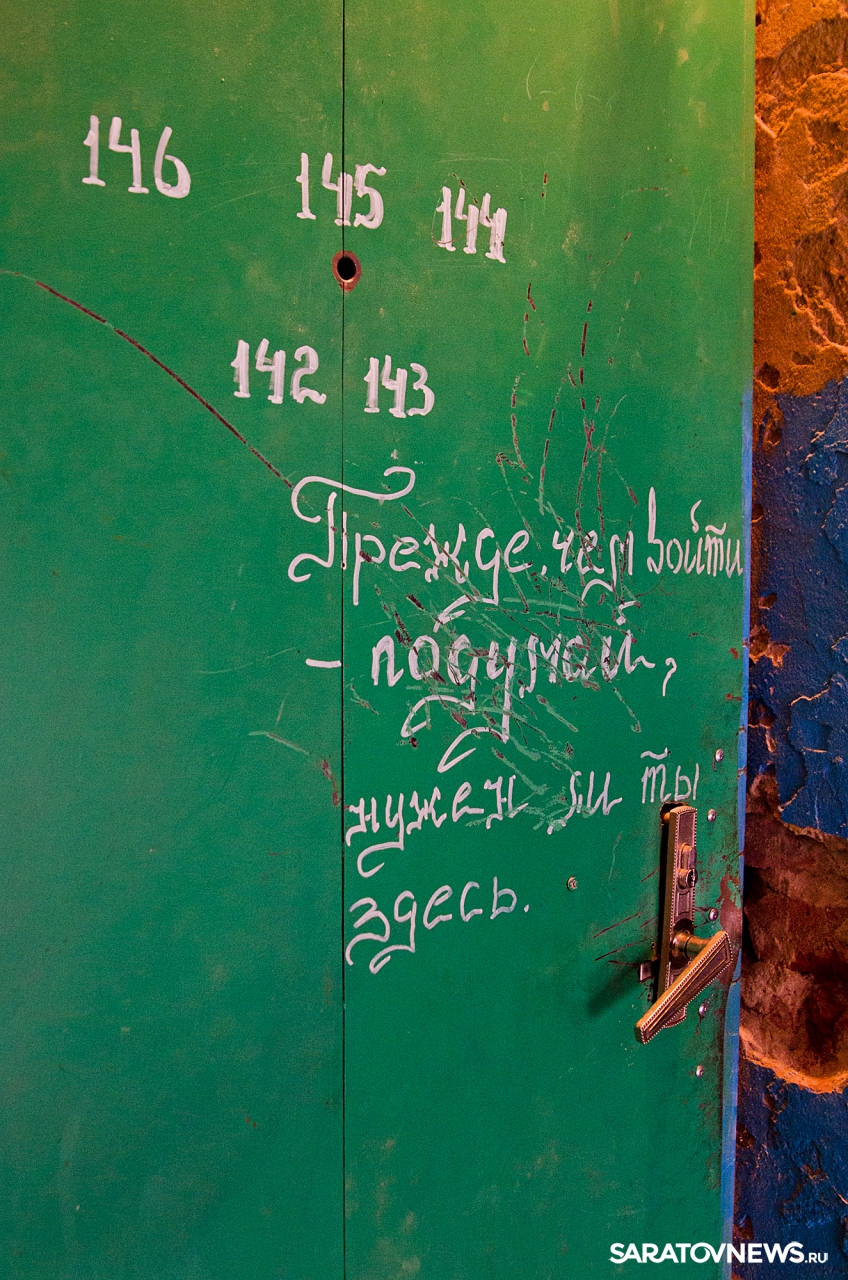 146 145 144
142 143
Прежде, чем войти
- подумай,
нужен ли ты
здесь.
SARATOVNEWS.RU